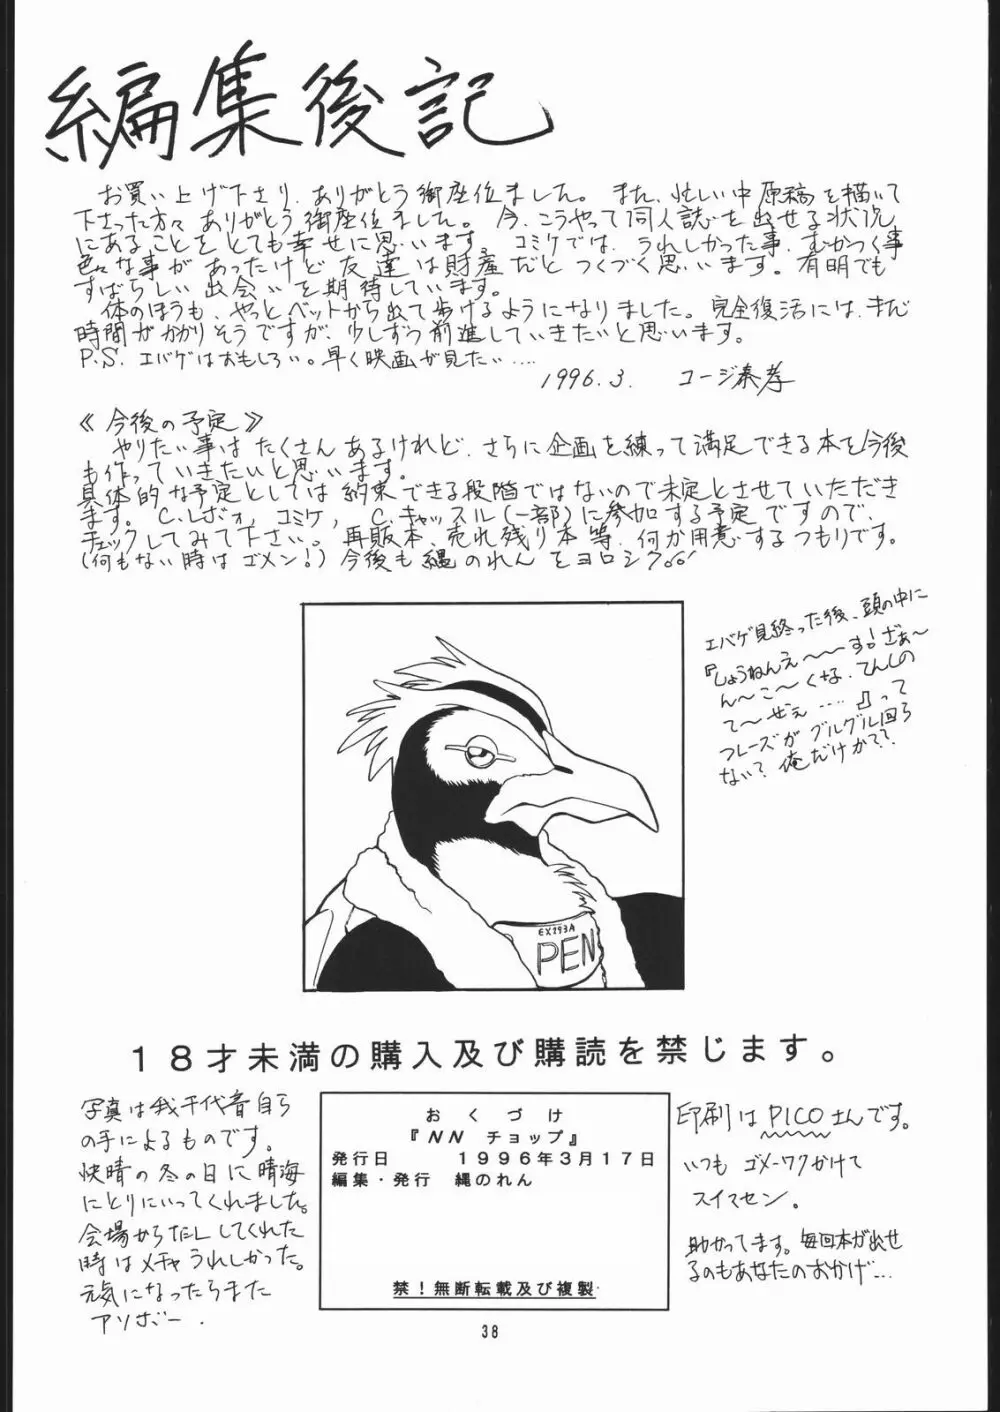 編集後記
お買い上げ下さり、ありがとう御座位ました。また、忙しい中原稿を描いて
下さった方々ありがとう御座位ました。今、こうやって同人誌を出せる状況
にあることをとても幸せに思います。コミケでは、うれしかった事、むかつく事
色々な事があったけど友達は財産だとつくづく思います。有明でも
すばらしい出会いを期待しています。
体のほうも、やっとベットから出て歩けるようになりました。完全復活には、まだ
時間がかかりそうですが、少しずつ前進していきたいと思います。
P.S. エバゲはおもしろい。早く映画が見たい‥‥
1996.3. コージ泰孝
《今後の予定》
やりたい事はたくさんあるけれど、さらに企画を練って満足できる本を今後
も作っていきたいと思います。
具体的な予定としては約束できる段階ではないので未定とさせていただき
ます。C.レボォ、コミケ、C.キャッスル(一部)に参加する予定ですので、
チェックしてみて下さい。再販本、売れ残り本等、何か用意するつもりです。
(何もない時はゴメン!)今後も縄のれんをヨロシク。
エバゲ見終った後、頭の中に
『しょうねんえ〜〜〜す!ざぁ〜
ん〜こ〜くな、てんしの
て〜ぜぇ‥‥』って
フレーズがグルグル回ら
ない?俺だけか??
EX293A
PEN
18才未満の購入及び購読を禁じます。
写真は我千代音自ら
の手によるものです。
快晴の冬の日に晴海
にとりにいってくれました。
会場からだしてくれた
時はメチャうれしかった。
元気になったらまた
アソボー.
おくづけ
『NN チョップ』
発行日 1996年3月17日
編集・発行 縄のれん
禁!無断転載及び複製
印刷はPICOさんです。
いつもゴメーワクかけて
スイマセン。
助かってます。毎回本が出せ
るのもあなたのおかげ…
38